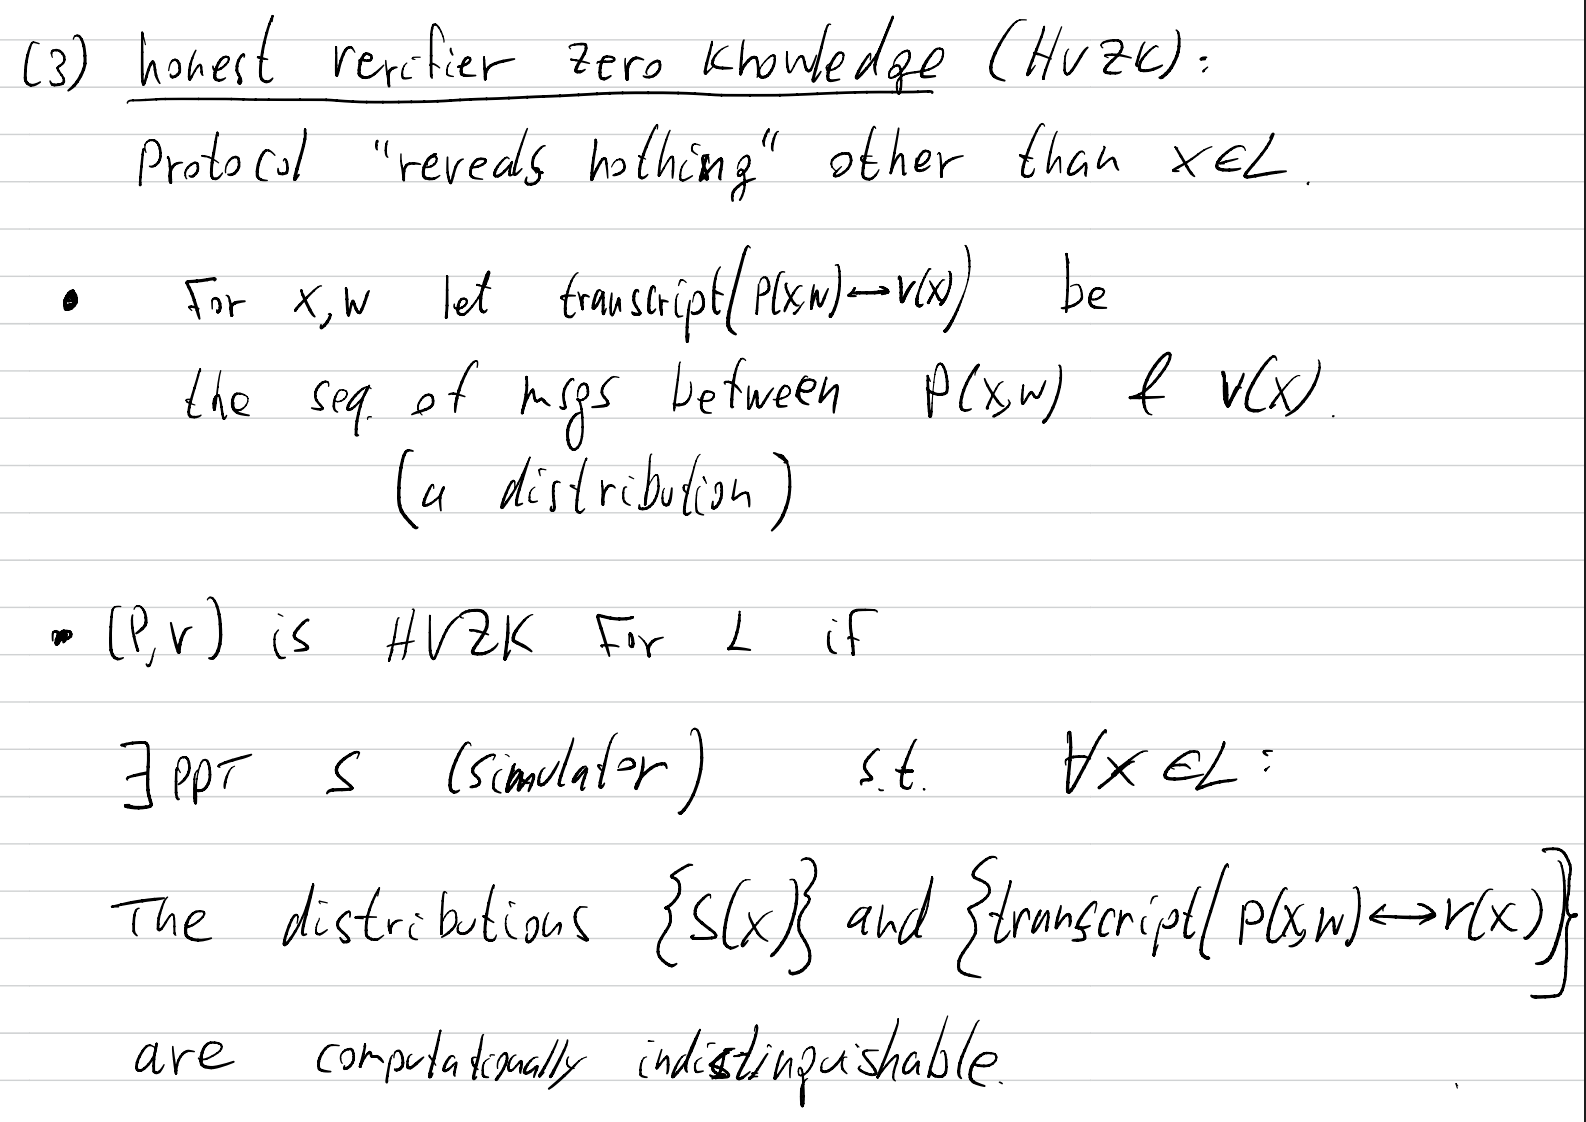 (3) honest verifier zero knowledge (HVZK):
Protocol "reveals nothing" other than x∈L.
• For x,w let transcript(P(x,w)↔V(x)) be
the seq. of msgs between P(x,w) & V(x).
(a distribution)
• (P,V) is HVZK for L if
∃ PPT S (simulator) s.t. ∀x∈L:
The distributions {S(x)} and {transcript(P(x,w)↔V(x))}
are computationally indistinguishable.